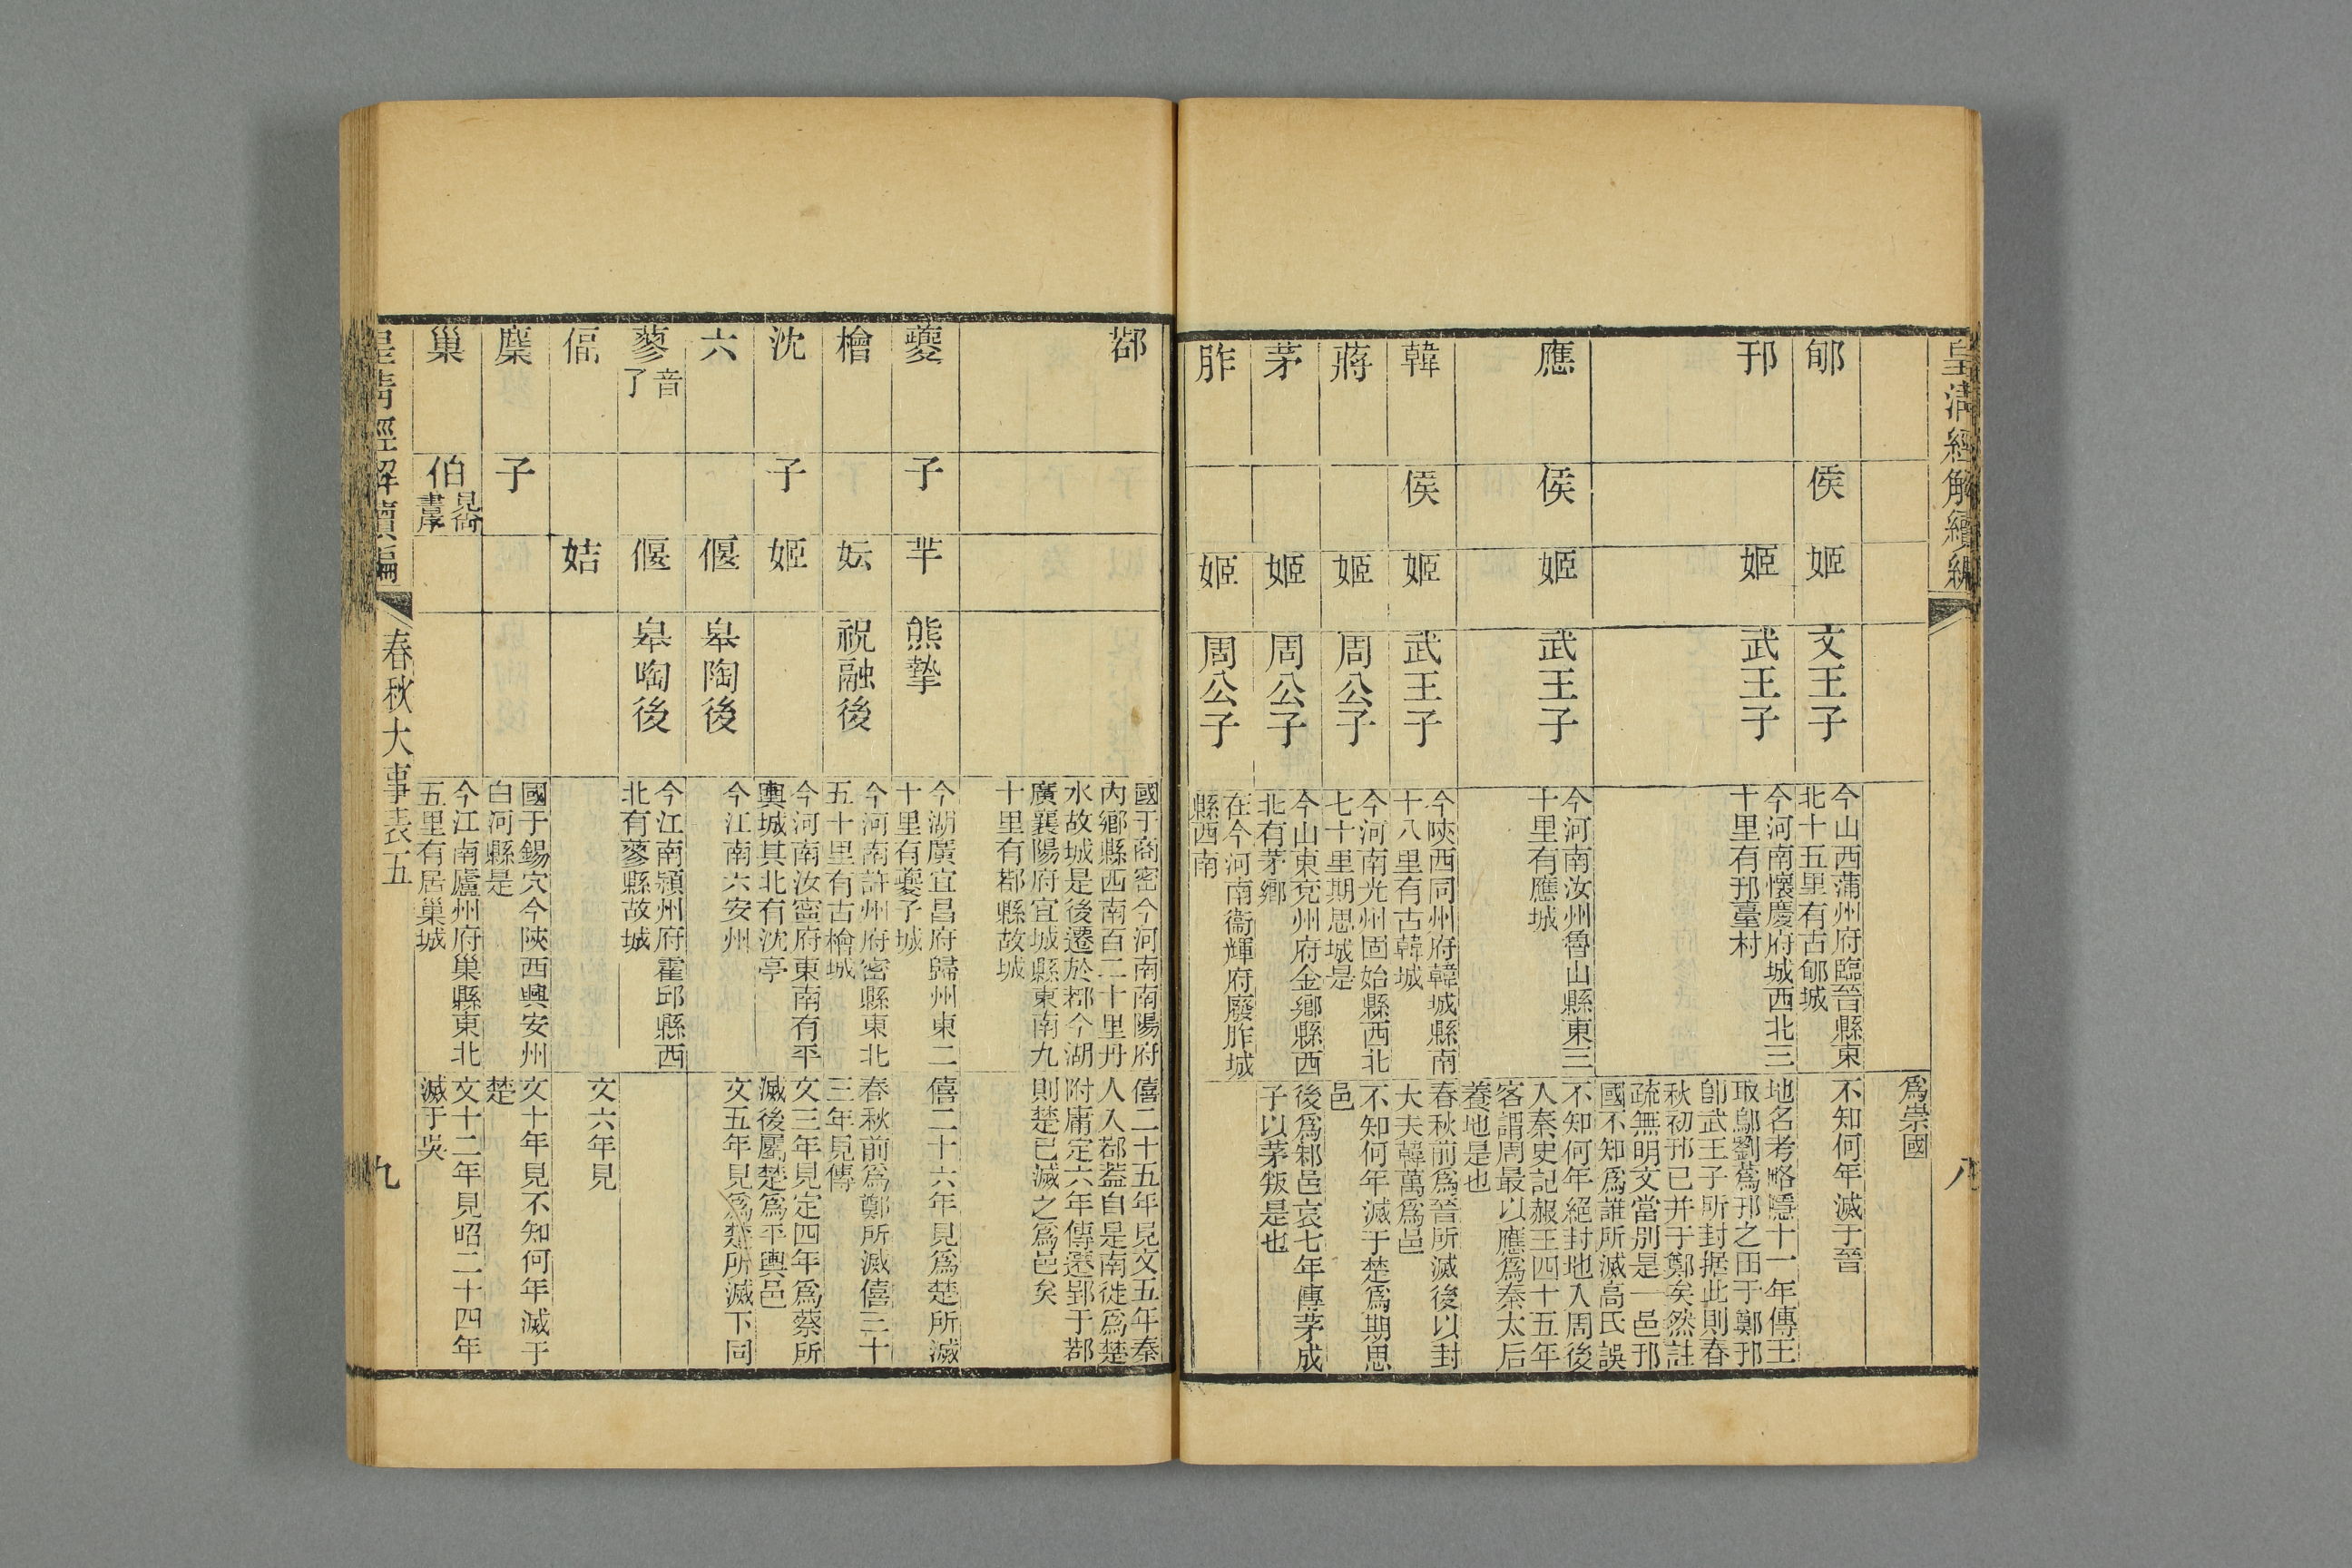 皇清經解續編
八
為崇國
郇
侯
姬
文王子
今山西蒲州府臨晉縣東
北十五里有古郇城
不知何年滅于晉
邘
姬
武王子
今河南懷慶府城西北三
十里有邘臺村
地名考略隱十一年傳王
取鄔劉蒍邘之田于鄭邘
卽武王子所封据此則春
秋初邘已并于鄭矣然註
疏無明文當別是一邑邘
國不知為誰所滅高氏誤
應
侯
姬
武王子
今河南汝州魯山縣東三
十里有應城
不知何年絕封地入周後
人秦史記赧王四十五年
客謂周最以應為秦太后
養地是也
韓
侯
姬
武王子
今陝西同州府韓城縣南
十八里有古韓城
春秋前為晉所滅後以封
大夫韓萬為邑
蔣
姬
周公子
今河南光州固始縣西北
七十里期思城是
不知何年滅于楚為期思
邑
茅
姬
周公子
今山東兖州府金鄉縣西
北有茅鄉
後為邾邑哀七年傳茅成
子以茅叛是也
胙
姬
周公子
在今河南衞輝府廢胙城
縣西南
鄀
國于商密今河南南陽府
內鄉縣西南百二十里丹
水故城是後遷於鄀今湖
廣襄陽府宜城縣東南九
十里有鄀縣故城
僖二十五年見文五年秦
人入鄀葢自是南徙為楚
附庸定六年傳遷郢于鄀
則楚已滅之為邑矣
夔
子
芈
熊摯
今湖廣宜昌府歸州東二
十里有夔子城
僖二十六年見為楚所滅
檜
妘
祝融後
今河南許州府密縣東北
五十里有古檜城
春秋前為鄭所滅僖三十
三年見傳
沈
子
姬
今河南汝寧府東南有平
輿城其北有沈亭
文三年見定四年為蔡所
滅後屬楚為平輿邑
六
偃
皋陶後
今江南六安州
文五年見為楚所滅下同
蓼音了
偃
皋陶後
今江南潁州府霍邱縣西
北有蓼縣故城
偪
姞
文六年見
麇
子
國于錫穴今陝西興安州
白河縣是
文十年見不知何年滅于
楚
巢
伯見尚書序
今江南廬州府巢縣東北
五里有居巢城
文十二年見昭二十四年
滅于吳
皇清經解續編
春秋大事表五
九